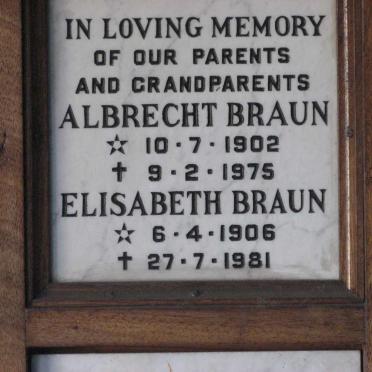 IN LOVING MEMORY
OF OUR PARENTS
AND GRANDPARENTS
ALBRECHT BRAUN
☆ 10·7·1902
✝ 9·2·1975
ELISABETH BRAUN
☆ 6·4·1906
✝ 27·7·1981